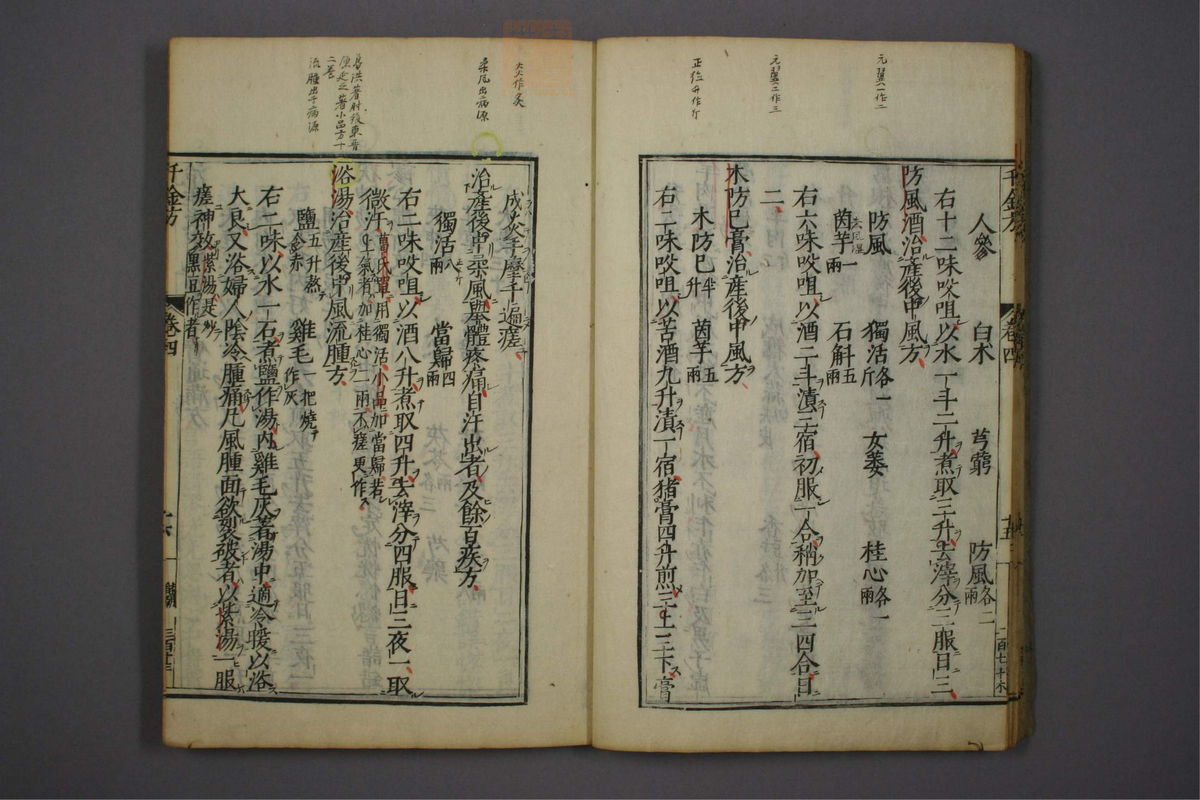 元翼一作二
元翼二作三
正德升作斤
千金方 卷四 十五
人參 白朮 芎藭 防風各二兩
右十二味㕮咀以水一斗二升煮取三升去滓分三服日三
防風酒治產後中風方
防風 獨活各一斤 女萎 桂心各一兩
茵芋一兩 石斛五兩
右六味㕮咀以酒二斗漬三宿初服一合稍加至三四合日
二
木防己膏治產後中風方
木防己半升 茵芋五兩
右二味㕮咀以苦酒九升漬一宿猪膏四升煎三上三下膏
火作灸
柔風出病源
葛洪著肘後東晉
二卷
流腫出于病源
成炙手摩千遍瘥
治產後中柔風舉體疼痛自汗出者及餘百疾方
獨活八兩 當歸四兩
右二味㕮咀以酒八升煮取四升去滓分四服日三夜一取
微汗葛氏單用獨活小品加當歸若上氣者加桂心二兩不瘥更作
浴湯治產後中風流腫方
鹽五升熬令赤 雞毛一把燒作灰
右二味以水一石煮鹽作湯內雞毛灰著湯中適冷暖以浴
大良又浴婦人陰冷腫痛凡風腫面欲裂破者以紫湯一服
瘥神效紫湯是炒黑豆作者
千金方 卷四 十六